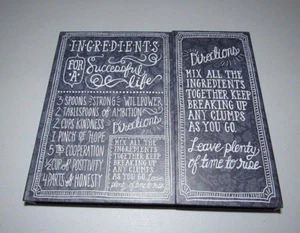 INGREDIENTS
FOR "A"
Successful
life
3 SPOONS STRONG WILLPOWER
2 TABLESPOONS of AMBITION
2 CUPS KINDNESS
1 PINCH of HOPE
COOPERATION
CUP of POSITIVITY
4 PARTS HONESTY
Directions
MIX ALL THE
INGREDIENTS
TOGETHER. KEEP
BREAKING UP
ANY CLUMPS
AS YOU GO.
Leave plenty
of time to rise
Directions
MIX ALL THE
INGREDIENTS
TOGETHER. KEEP
BREAKING UP
ANY CLUMPS
AS YOU GO.
Leave plenty
of time to rise